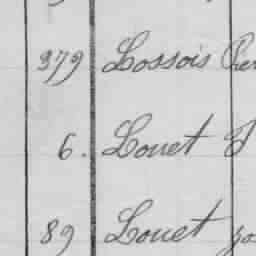 379 Lossois
6. Louet
89 Louet